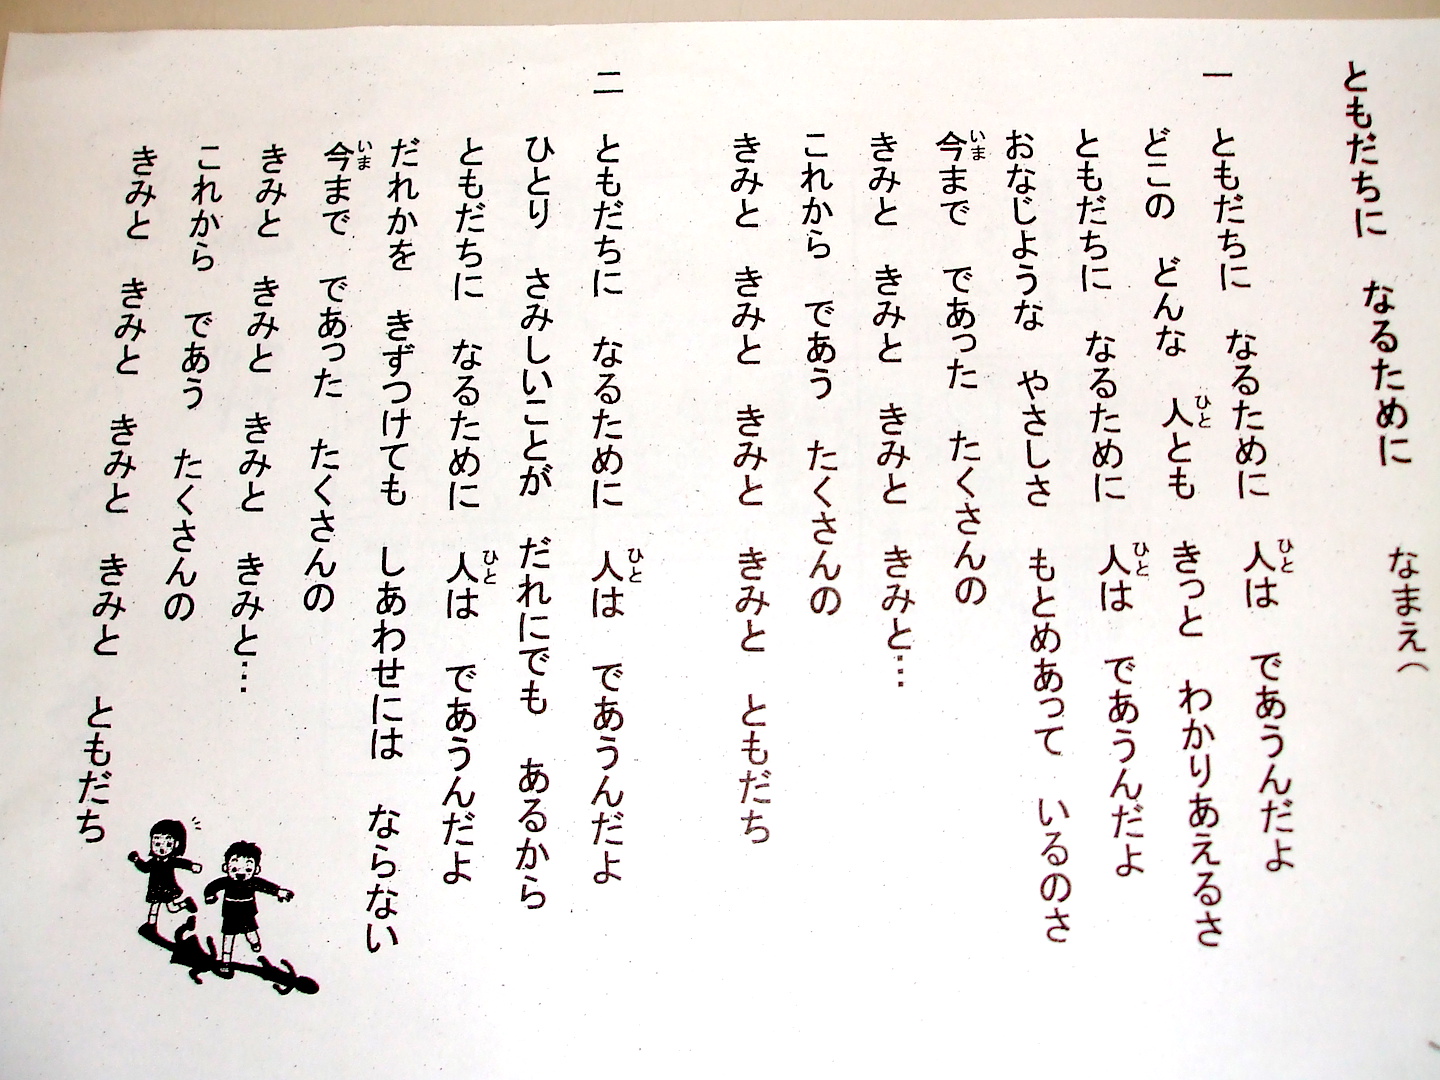 ともだちに　なるために　なまえ（
一
ともだちに　なるために　人は　であうんだよ
どこの　どんな　人とも　きっと　わかりあえるさ
ともだちに　なるために　人は　であうんだよ
おなじような　やさしさ　もとめあって　いるのさ
今まで　であった　たくさんの
きみと　きみと　きみと　きみと…
これから　であう　たくさんの
きみと　きみと　きみと　きみと　ともだち
二
ともだちに　なるために　人は　であうんだよ
ひとり　さみしいことが　だれにでも　あるから
ともだちに　なるために　人は　であうんだよ
だれかを　きずつけても　しあわせには　ならない
今まで　であった　たくさんの
きみと　きみと　きみと　きみと…
これから　であう　たくさんの
きみと　きみと　きみと　きみと　ともだち